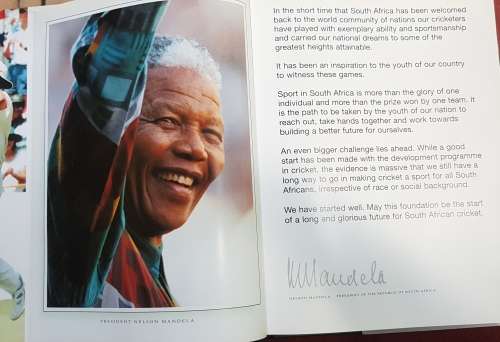 PRESIDENT NELSON MANDELA
In the short time that South Africa has been welcomed
back to the world community of nations our cricketers
have played with exemplary ability and sportsmanship
and carried our national dreams to some of the
greatest heights attainable.
It has been an inspiration to the youth of our country
to witness these games.
Sport in South Africa is more than the glory of one
individual and more than the prize won by one team. It
is the path to be taken by the youth of our nation to
reach out, take hands together and work towards
building a better future for ourselves.
An even bigger challenge lies ahead. While a good
start has been made with the development programme
in cricket, the evidence is massive that we still have a
long way to go in making cricket a sport for all South
Africans, irrespective of race or social background.
We have started well. May this foundation be the start
of a long and glorious future for South African cricket.
NMandela
NELSON MANDELA PRESIDENT OF THE REPUBLIC OF SOUTH AFRICA